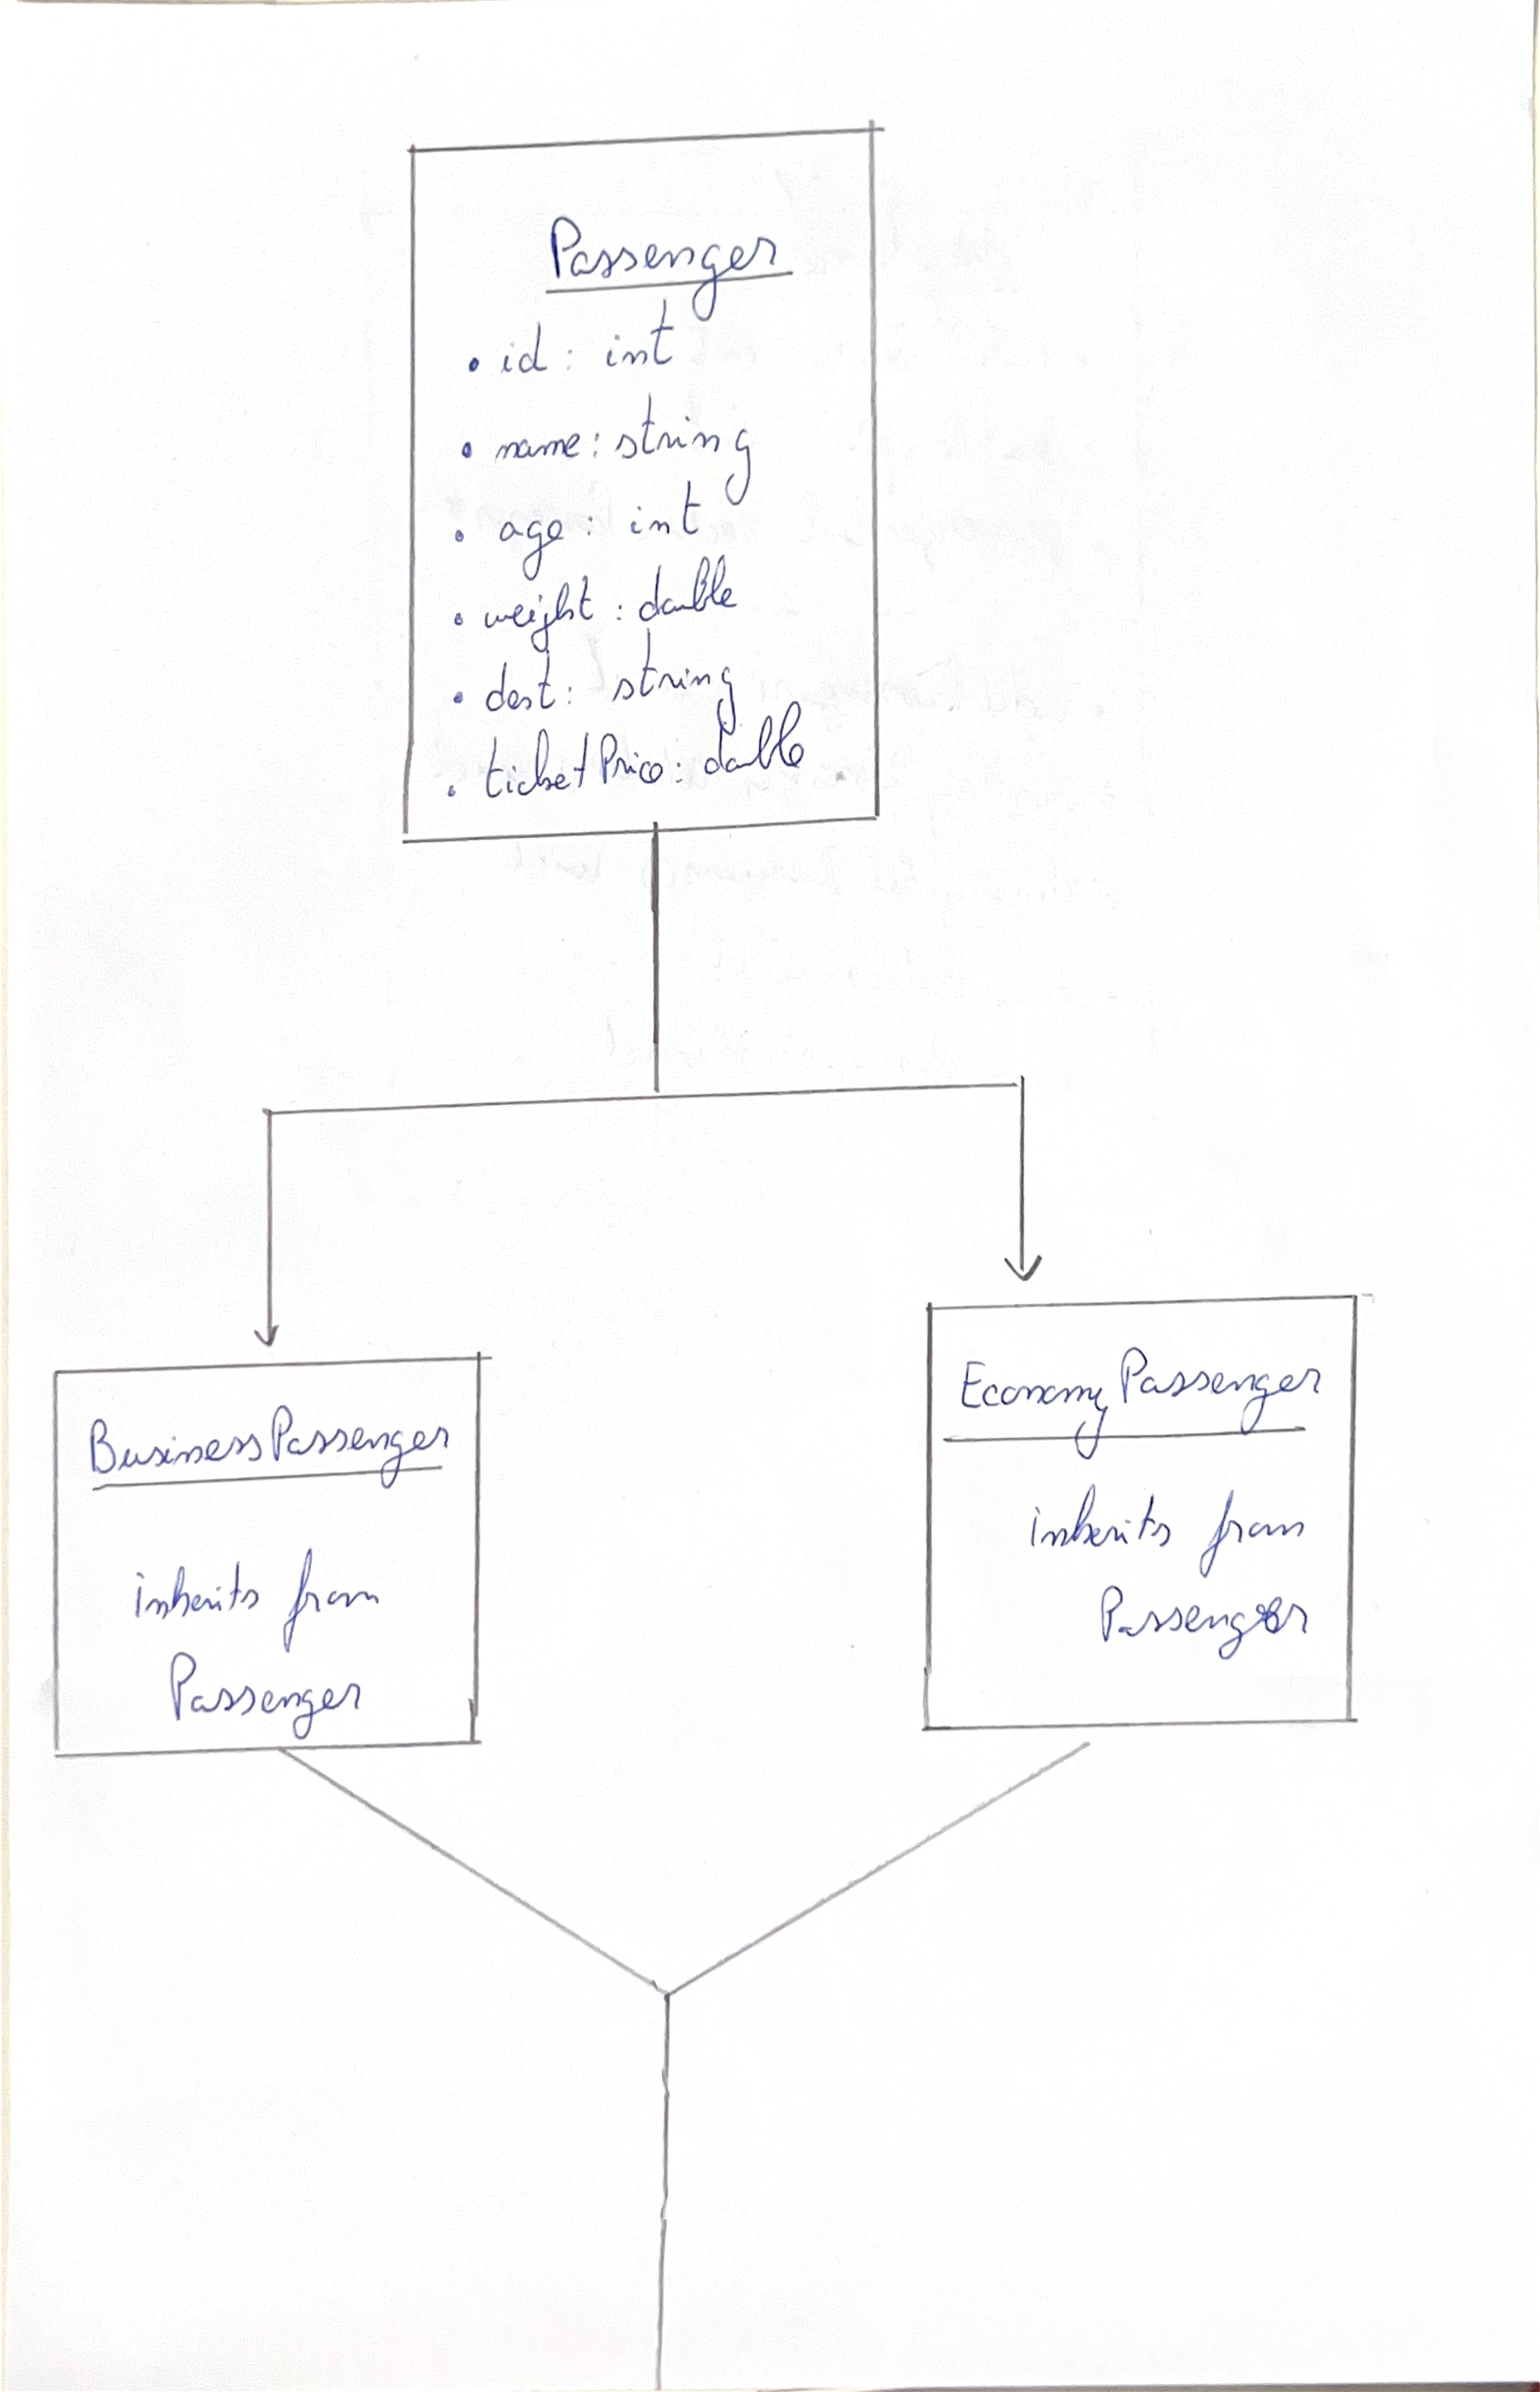 Passenger
• id: int
• name: string
• age: int
• weight: double
• dest: string
• ticketPrice: double
BusinessPassenger
inherits from
Passenger
EconomyPassenger
inherits from
Passenger